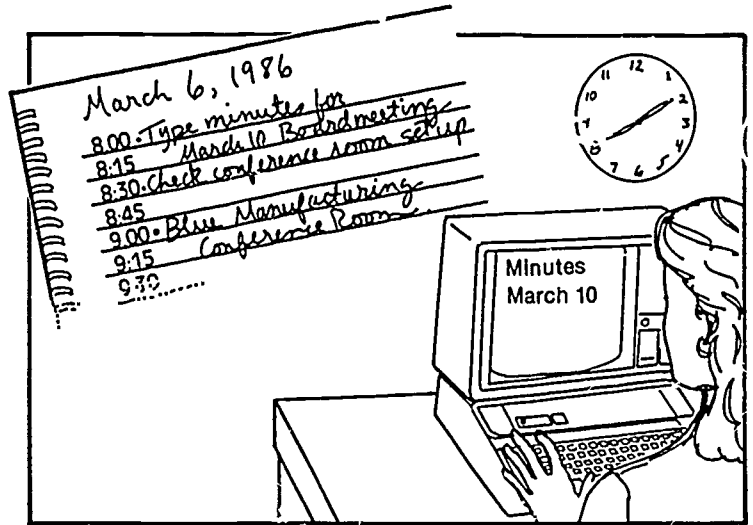 March 6, 1986
8:00 • Type minutes for
8:15 March 10 Board meeting
8:30 • Check conference room set up
8:45
9:00 • Blue Manufacturing
9:15 Conference Room
9:30
11 12 1
10 2
3
8 4
7 6 5
Minutes
March 10